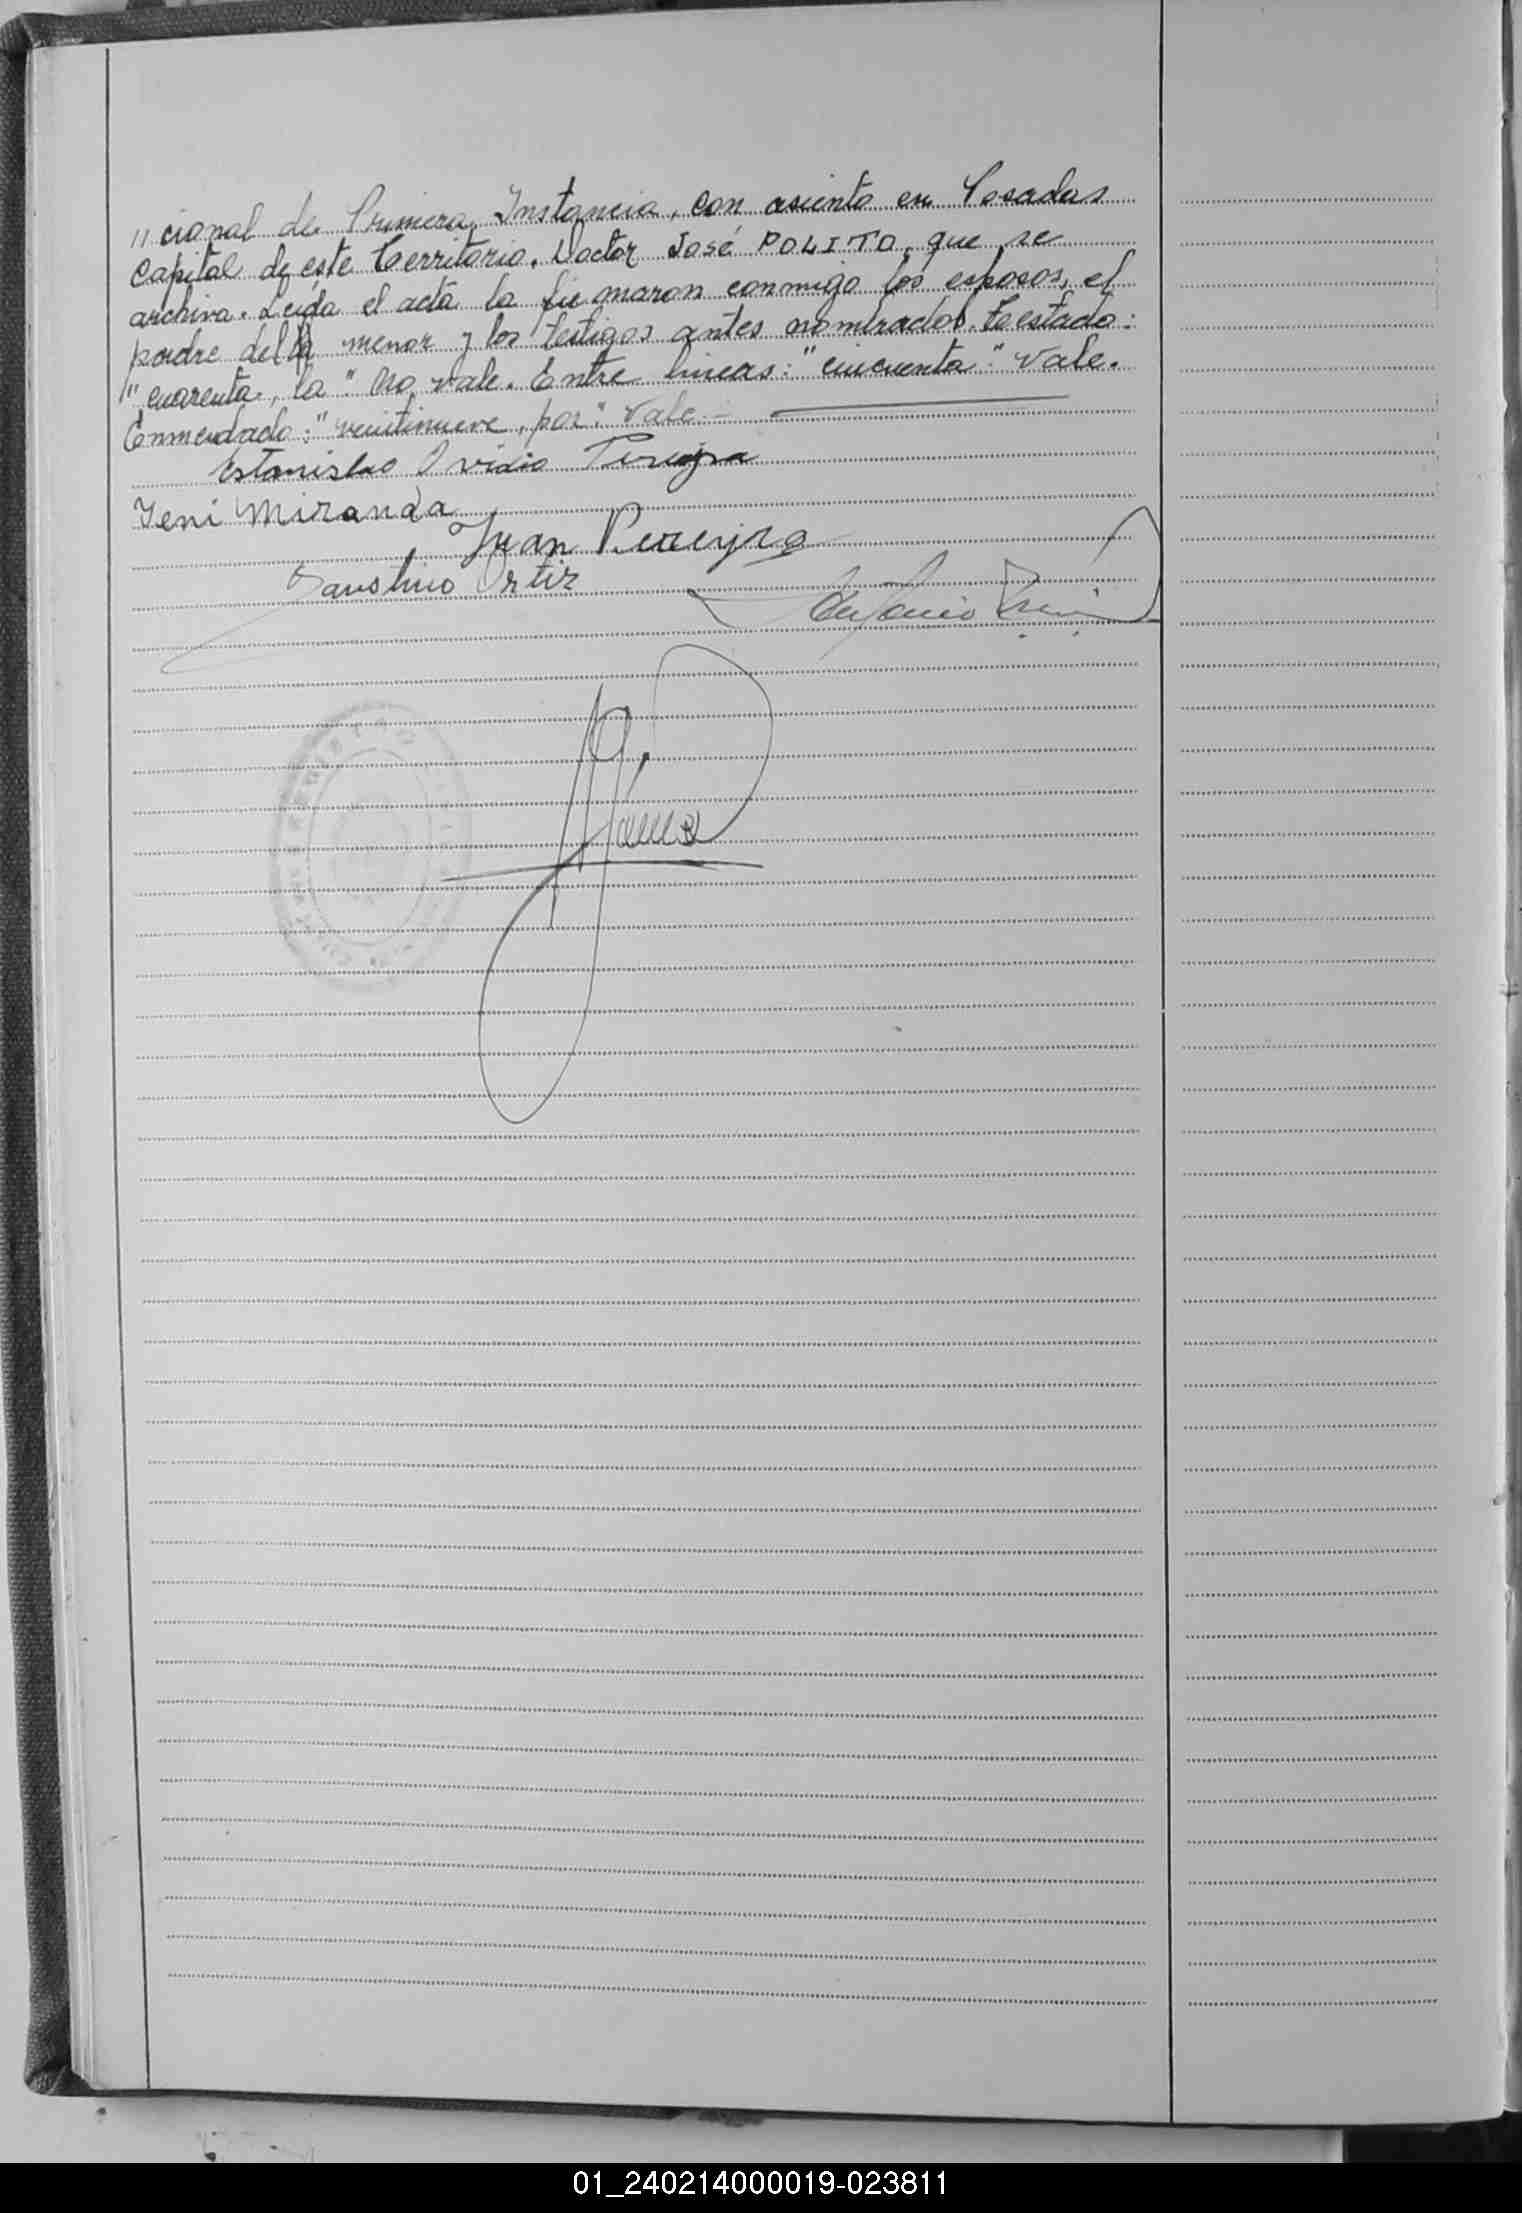 "cional de Primera Instancia, con asiento en Posadas
Capital de este Territorio, Doctor José POLITO, que se
archiva. Leída el acta la firmaron conmigo los esposos, el
padre del menor y los testigos antes nombrados. Testado:
"cuarenta, la" No vale. Entre lineas: "cincuenta" Vale.
Enmendado: "veintinueve, por" Vale
Estanislao Ovidio Pereyra
Yeni Miranda
Juan Pereyra
Faustino Ortiz
01_240214000019-023811